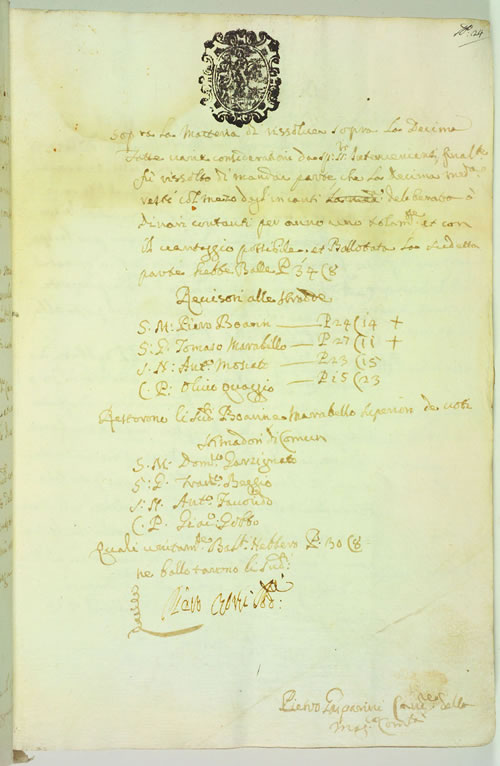 Sopra La Matteria di rissolver sopra La Decima
fatte varie considerationi da SS.ri Intervenienti, finalte
fù rissolto di mandar parte che La decima med.ma
resti col mezo degl'incanti deliberata à
dinari contanti per anno uno solam.te et con
il vantaggio possibile et Ballotata La sudetta
parte hebbe Balle P 34 C 8
Revisori alle strade
S. M: Piero Boarin — P 24 C 14 +
S: P: Tomaso Marabello — P 27 C 11 +
S: N: Ant.o Moscato — P 23 C 15
C: P: Olivio Quaggio — P 15 C 23
Restorono li Sud.i Boarin e Marabello superiori de voti
Stimadori di Comun
S: M: Dom.co
S: P: Fran.co Beggio
S: N: Ant.o
C: P: Gobbo
Quali unitam.te Ball.ti Hebbero P 30 C 8
ne ballotarono li Sud.i
Piero
Piero Gasparini della
Mag.ca Com.tà